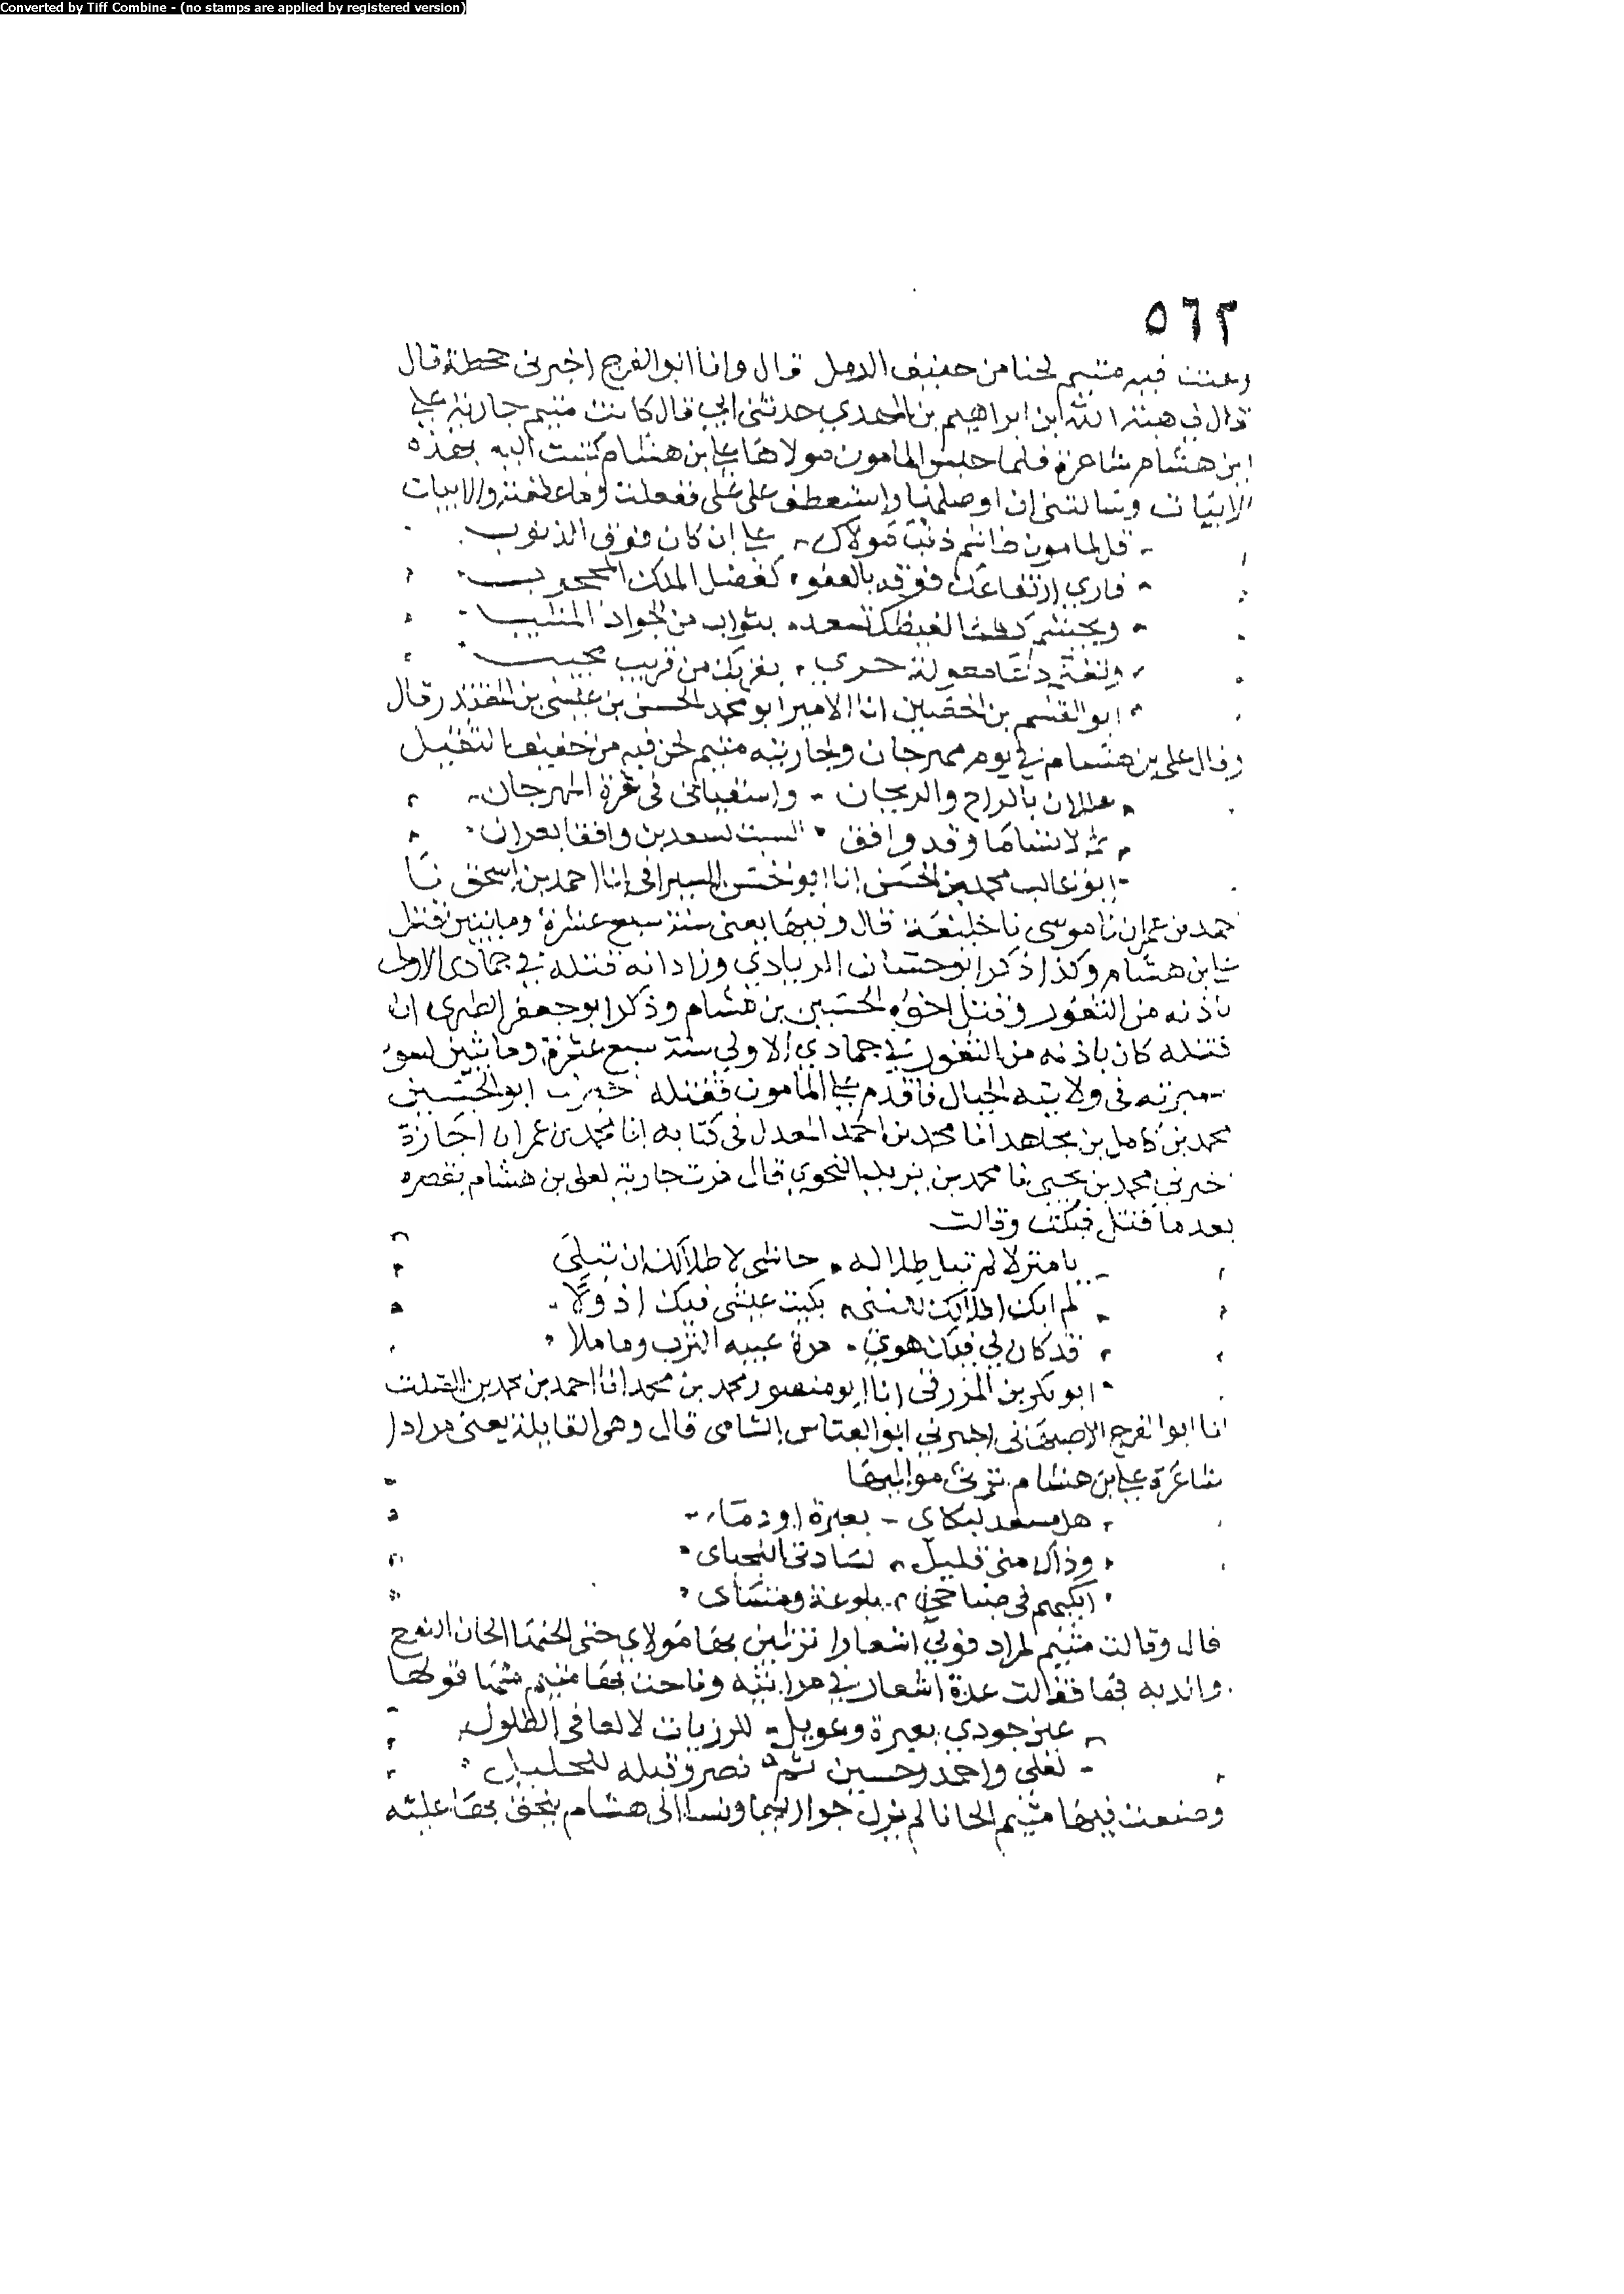 Converted by Tiff Combine - (no stamps are applied by registered version)
٥٦٢
وغنت فيه متيم لحنا من خفيف الرمل قال وانا ابو الفرج اخبرني جحظة قال
قال لي هبة الله ابن ابراهيم بن المهدي حدثني ابي قال كانت متيم جارية علي
ابن هشام شاعرة فلما حبس المامون مولاها علي بن هشام كتبت اليه بهذه
الابيات وسالتني ان اوصلها واستعطف على علي ففعلت وما عطفته والابيات
قل لمامون هاشم ذنب مولاي علي ان كان فوق الذنوب
فاري ارتفاعك فوقه بالعفو كفضل الملك
الغيظ بعده بثواب من الجواد المثيب
حري من قريب مجيب
ابو القسم بن الحصين انا الامير ابو محمد الحسن بن عيسى بن المقتدر قال
وقال علي بن هشام في يوم مهرجان ولجاريته متيم لحن فيه من خفيف الثقيل
عللان بالراح والريحان واسقياني في غرة المهرجان
ثم لا تساما وقد وافق السبت لسعدين وافقا بعران
ابو غالب محمد بن الحسن انا ابو الحسن السيرافي انا احمد بن اسحق نا
احمد بن عمران نا موسى نا خليفة قال وفيها يعني سنة سبع عشرة ومايتين قتل
علي بن هشام وكذا ذكر ابو حسان الزيادي وزاد انه قتله في جمادى الاولى
باذنه من الثغور وقتل اخوه الحسين بن هشام وذكر ابو جعفر الطبري ان
قتله كان باذنه من الثغور في جمادي الاولي سنة سبع عشرة ومايتين لسوء
سيرته في ولايته الجبال فاقدم علي المامون فقتله اخبرنا ابو الحسين
محمد بن كامل بن مجاهد انا محمد بن احمد المعدل في كتابه انا محمد بن عمران اجازة
اخبرني محمد بن يحيى نا محمد بن يزيد النحوي قال مرت جارية لعلي بن هشام بقصره
بعد ما قتل فبكت وقالت
يا منزلا لم تبل اطلاله حاشى لاطلالك ان تبلى
لم ابك اطلالك لكنني بكيت عيشى فيك اذ ولا
قد كان لي فيك هوي مرة غيبه الترب وما ملا
ابو بكر بن المزرفي انا ابو منصور محمد بن محمد انا احمد بن محمد بن الصلت
انا ابو الفرج الاصبهاني اخبرني ابو العباس الشامى قال وهي القايلة يعني مرادا
شاعرة علي بن هشام ترثى مواليها
هل مسعد لبكاى بعبرة او دماء
وذاك مني قليل لسادتي النجباى
ابكيهم في صباحي بلوعة ومساى
قال وقالت متيم لمراد قولي اشعارا ترثين بها مولاي حتى الحنها الحان النوح
واندبه بها فقالت عدة اشعار في مراثيه وناحت بها متيم منها قولها
عين جودي بعبرة وعويل للرزيات لا لعافي الطلول
لعلي واحمد وحسين ثم نصر وقبله للخليل
وصنعت فيها متيم الحانا لم يزل جواريها ونسا ال هشام ينحن بها عليه